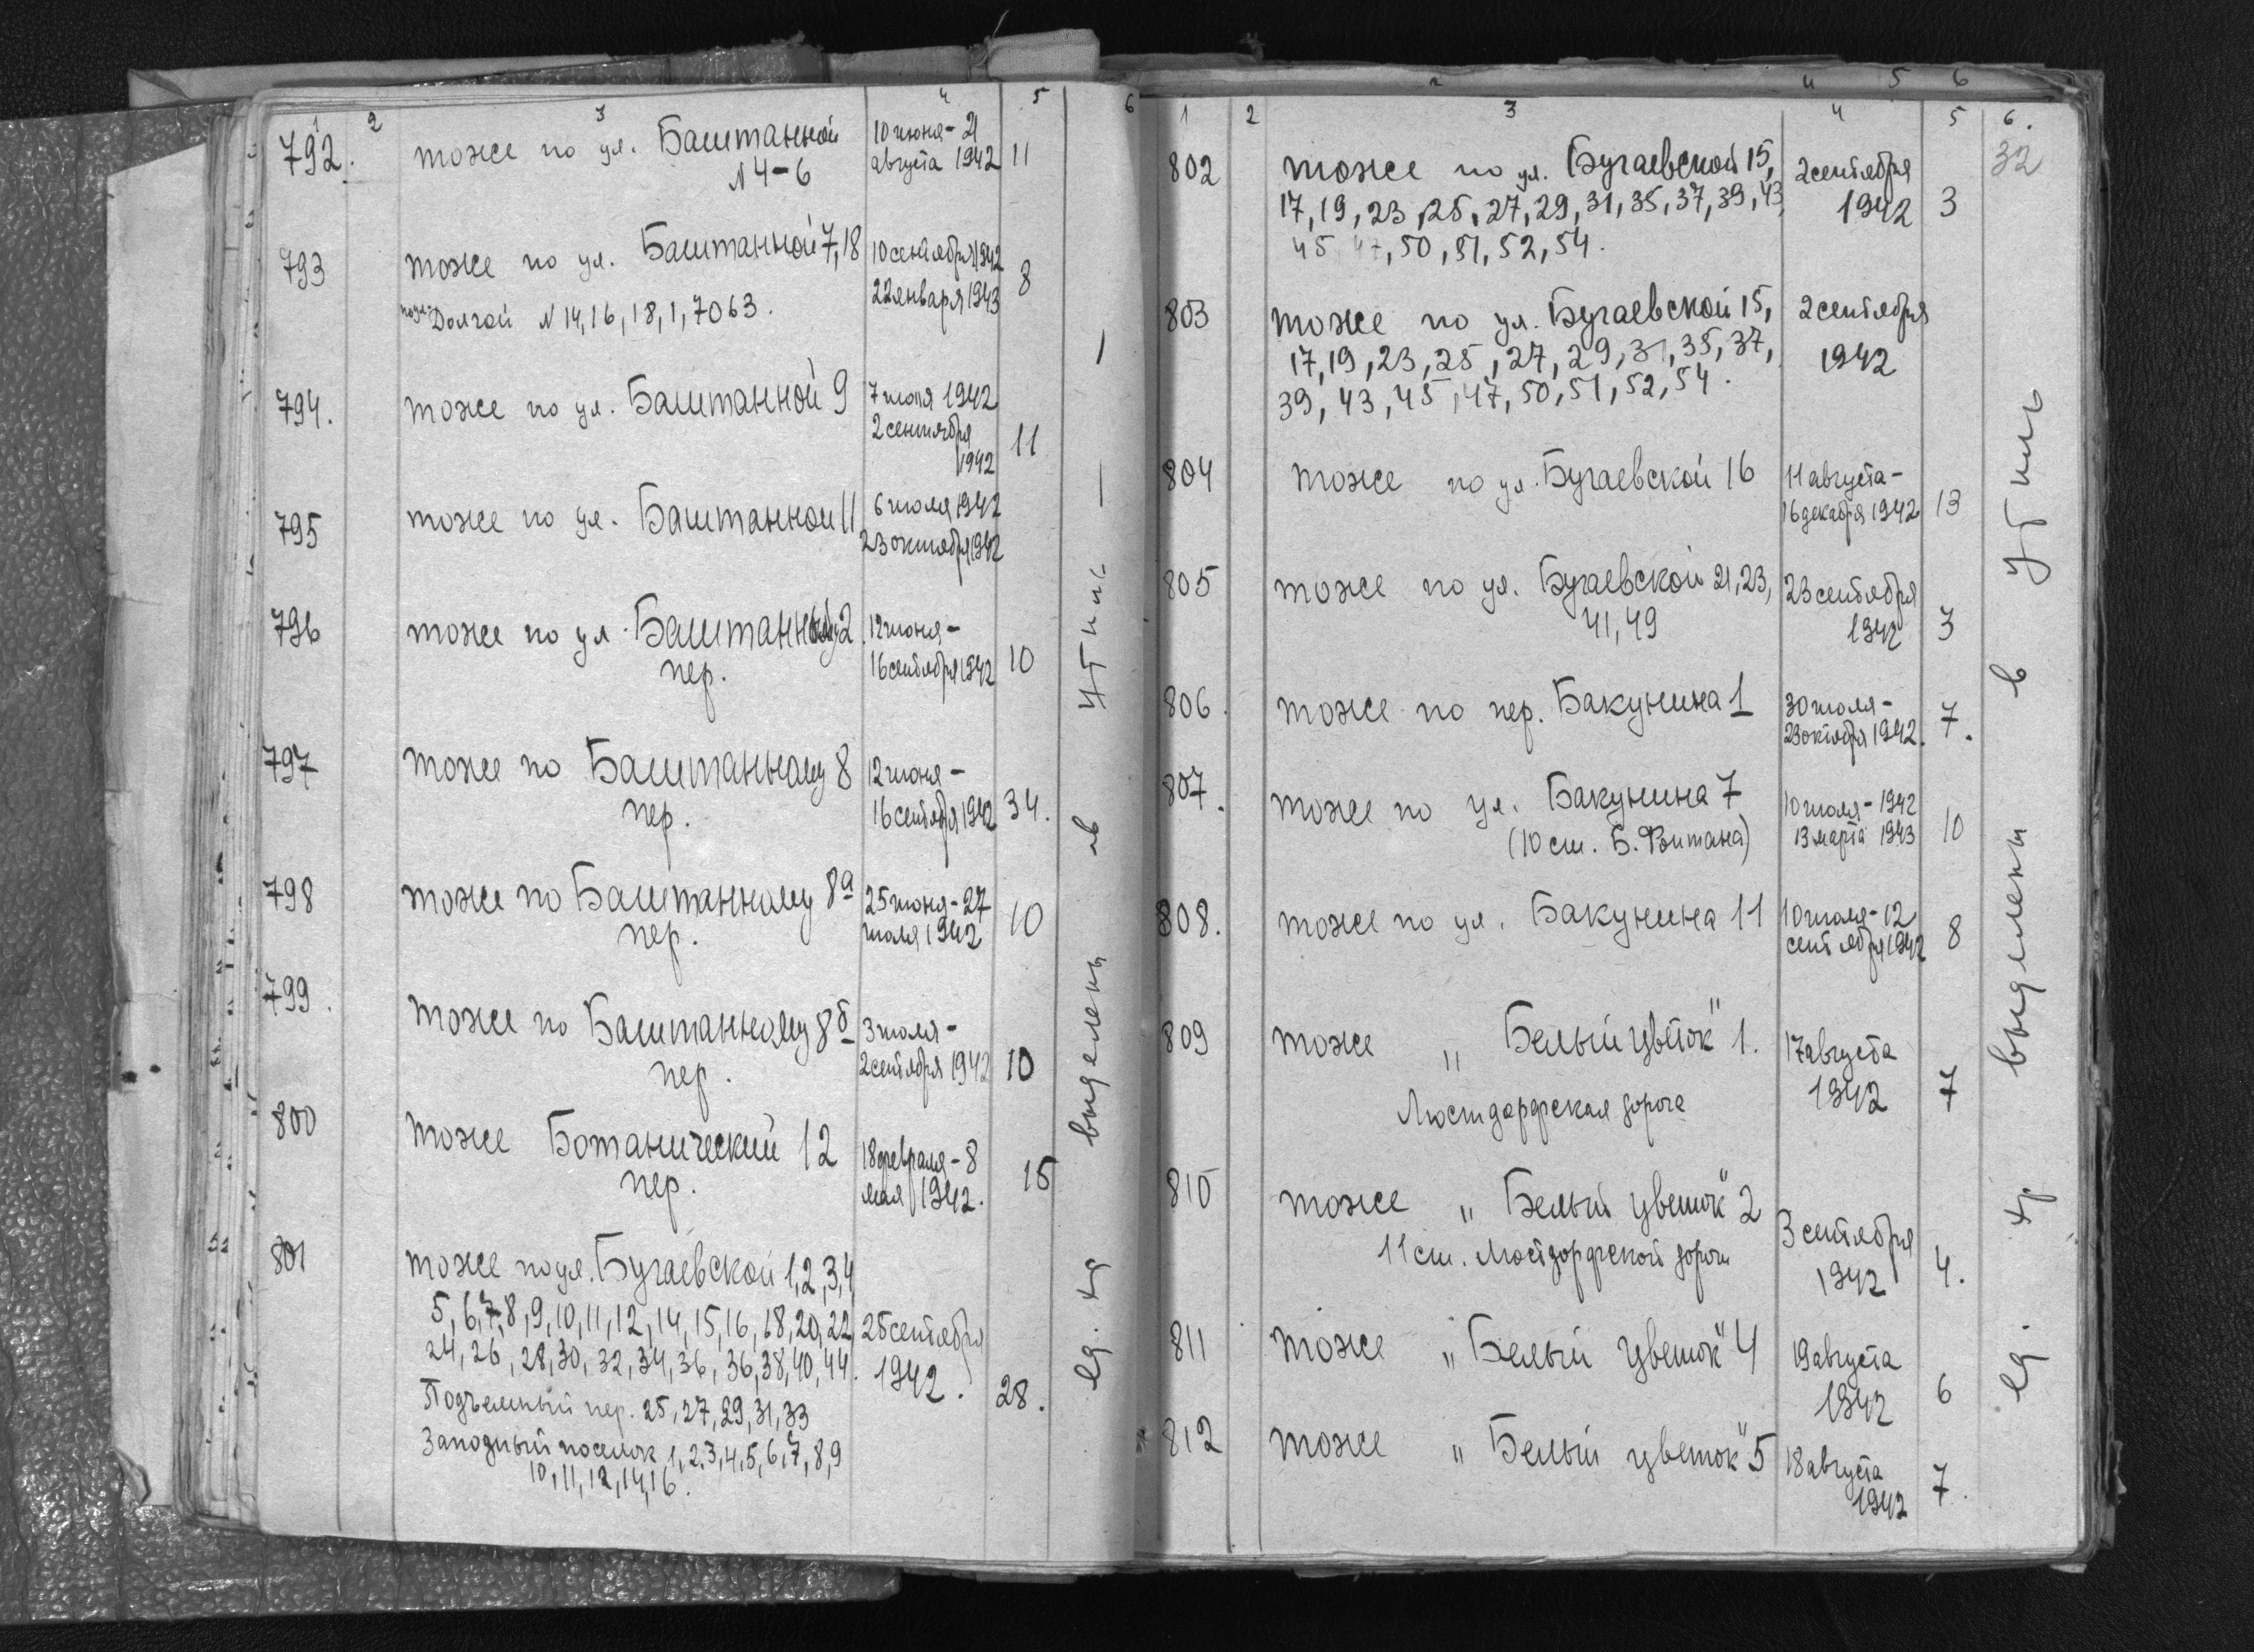 1 2 3 4 5 6
792. тоже по ул. Баштанной 10 июня - 21
№ 4-6 августа 1942 11
793 тоже по ул. Баштанной 7, 18 10 сентября 1942
по ул. Долгой № 14, 16, 18, 1, 7063. 22 января 1943 8
794. тоже по ул. Баштанной 9 7 июля 1942
2 сентября
1942 11
795 тоже по ул. Баштанной 11 6 июля 1942
23 октября 1942
796 тоже по ул. Баштанному 2 12 июня -
пер. 16 сентября 1942 10
797 тоже по Баштанному 8 12 июня -
пер. 16 сентября 1942 34.
798 тоже по Баштанному 8а 25 июня - 27
пер. июля 1942 10
799. тоже по Баштанному 8б 3 июля -
пер. 2 сентября 1942 10
800 тоже Ботанический 12 18 февраля - 8
пер. мая 1942. 15
801 тоже по ул. Бугаевской 1, 2, 3, 4
5, 6, 7, 8, 9, 10, 11, 12, 14, 15, 16, 18, 20, 22 25 сентября
24, 26, 28, 30, 32, 34, 36, 36, 38, 40, 44. 1942. 28.
Подъемный пер. 25, 27, 29, 31, 33
Западный поселок 1, 2, 3, 4, 5, 6, 7, 8, 9
10, 11, 12, 14, 16.
ед. хр выделены в утиль
4 5 6
1 2 3 4 5 6.
32
802 тоже по ул. Бугаевской 15, 2 сентября
17, 19, 23, 25, 27, 29, 31, 35, 37, 39, 43, 1942 3
45, 47, 50, 51, 52, 54.
803 тоже по ул. Бугаевской 15, 2 сентября
17, 19, 23, 25, 27, 29, 31, 35, 37, 1942
39, 43, 45, 47, 50, 51, 52, 54.
804 тоже по ул. Бугаевской 16 11 августа -
16 декабря 1942 13
805 тоже по ул. Бугаевской 21, 23, 23 сентября
41, 49 1942 3
806. тоже по пер. Бакунина 1 30 июля -
23 октября 1942. 7.
807. тоже по ул. Бакунина 7 10 июля - 1942
(10 ст. Б. Фонтана) 13 марта 1943 10
808. тоже по ул. Бакунина 11 10 июля - 12
сентября 1942 8
809 тоже "Белый цветок" 1. 17 августа
Люстдорфская дорога 1942 7
810 тоже "Белый цветок" 2 3 сентября
11 ст. Люстдорфской дороги 1942 4.
811 тоже "Белый цветок" 4 19 августа
1942 6
812 тоже "Белый цветок" 5 18 августа
1942 7.
ед. хр. выделены в утиль